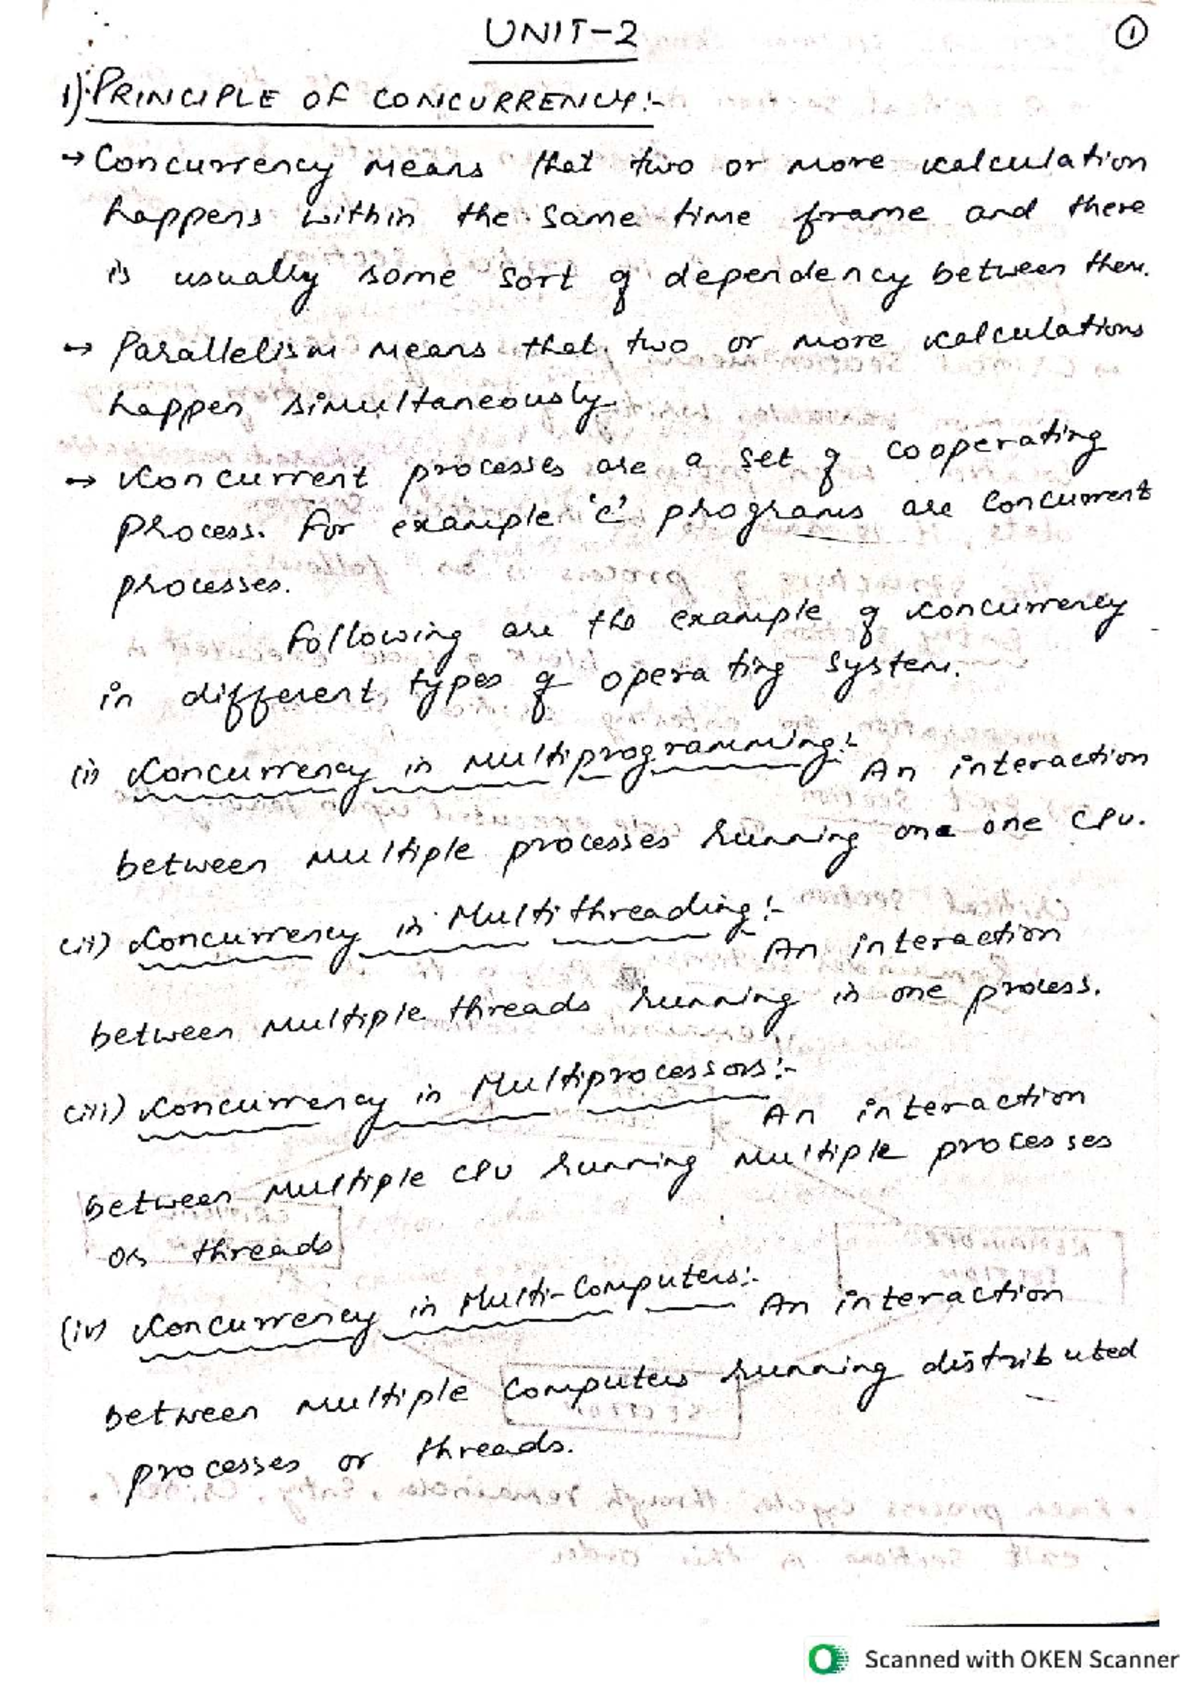 UNIT-2
1
1) PRINCIPLE OF CONCURRENCY:-
→ Concurrency means that two or more calculation
happens within the same time frame and there
is usually some sort of dependency between them.
→ Parallelism means that two or more calculations
happen simultaneously.
→ Concurrent processes are a set of cooperating
process. For example 'C' programs are concurrent
processes.
Following are the example of concurrency
in different types of operating system.
(i) Concurrency in Multiprogramming:- An interaction
between multiple processes running one one CPU.
(ii) Concurrency in Multithreading:- An interaction
between multiple threads running in one process.
(iii) Concurrency in Multiprocessors:- An interaction
between multiple CPU running multiple processes
or threads
(iv) Concurrency in Multi-Computers:- An interaction
between multiple computers running distributed
processes or threads.
Scanned with OKEN Scanner